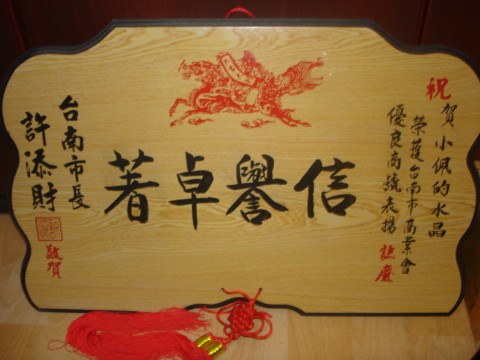 祝賀小佩的水晶
榮獲台南市商業會
優良商號表揚誌慶
信譽卓著
台南市長
許添財
敬賀